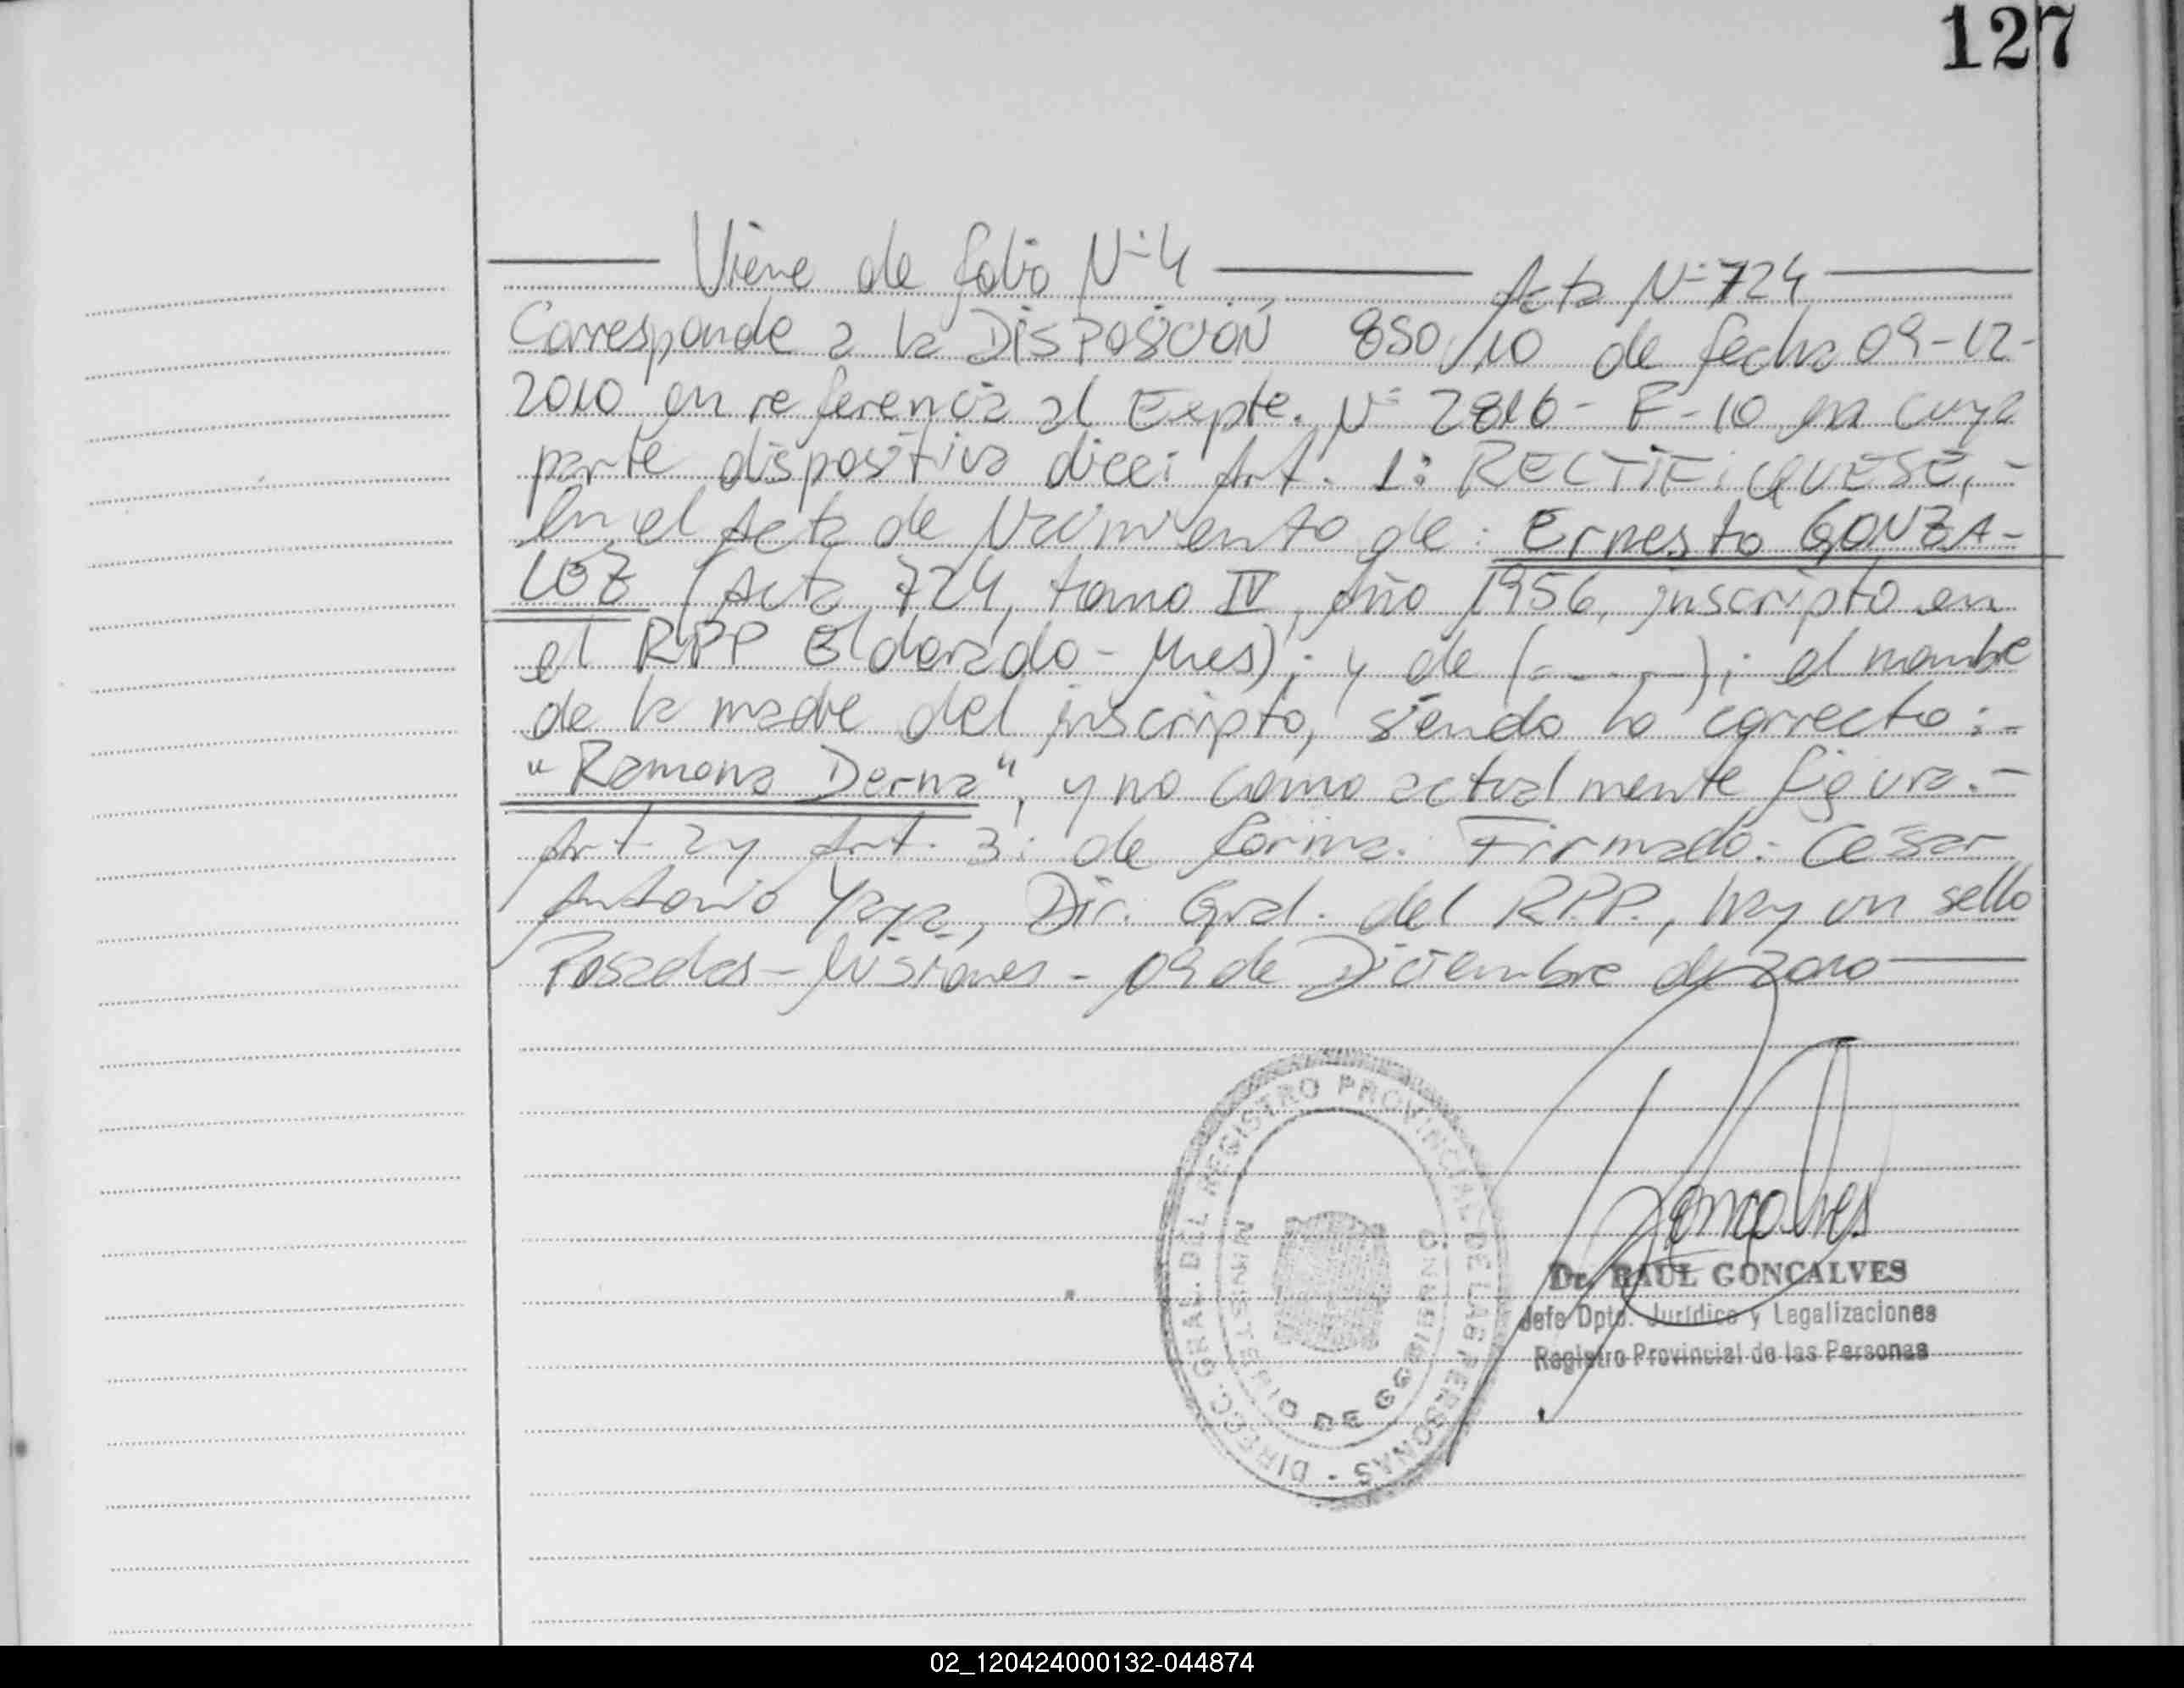 127
Viene de folio N° 4
Acta N° 724
Corresponde a la DISPOSICIÓN 850/10 de fecha 09-12-
2010 en referencia al Expte. N° 2816-F-10 en cuya
parte dispositiva dice: Art. 1: RECTIFIQUESE,-
En el Acta de Nacimiento de: Ernesto GONZA-
LEZ (Acta 724, tomo IV, Año 1956, inscripto en
el RPP Eldorado - Mnes); y de (- - - - -); el nombre
de la madre del inscripto, siendo lo correcto:-
"Ramona Derna", y no como actualmente figura.-
Art. 2 y Art. 3: de forma. Firmado: Cesar
Antonio Yaya, Dir. Gral. del RPP., hay un sello
Posadas - Misiones - 09 de Diciembre de 2010
DIRECC. GRAL. DEL REGISTRO PROVINCIAL DE LAS PERSONAS -
MINISTERIO DE GOBIERNO
Goncalves
Dr. RAUL GONCALVES
Jefe Dpto. Jurídico y Legalizaciones
Registro Provincial de las Personas
02_120424000132-044874